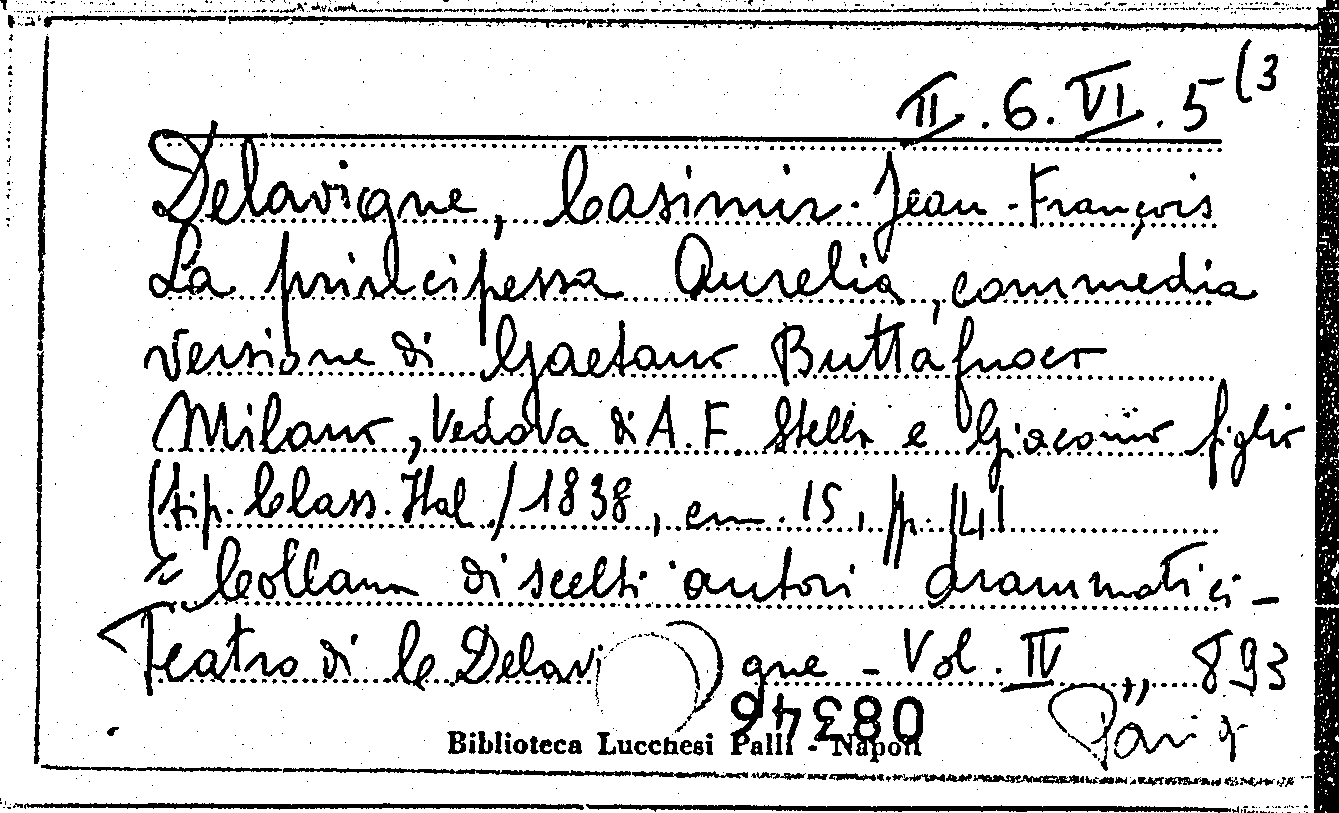 II. 6. VI. 5 (3
Delavigne, Casimir-Jean-François
La principessa Aurelia, commedia
versione di Gaetano Buttafuoco
Milano, Vedova di A. F. Stella e Giacomo figlio
(tip. Class. Ital.) 1838, cm. 15, pp. 141
"Collana di scelti autori drammatici -
Teatro di C. Delavigne - Vol. IV „ 893
08346
Biblioteca Lucchesi Palli - Napoli